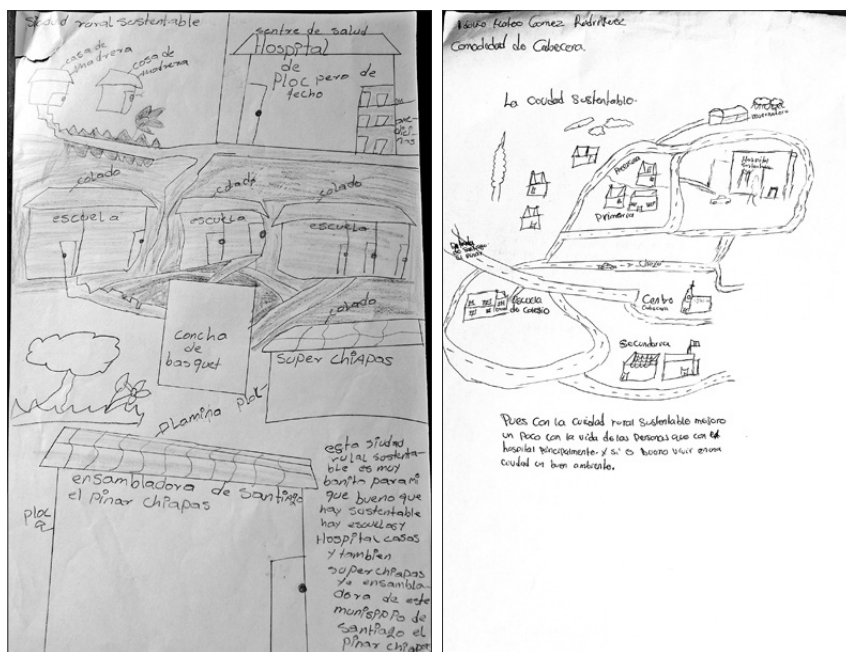 rural sustentable
casa de madrera
cosa de madrena
sentre de salud
Hospital
de
Ploc pero de
techo
me-
dici-
nas
colado
cdado
colado
escuela
escuela
escuela
concha
de
basquet
colado
super chiapas
plamina ploc
ensambladora de Santiago
el pinar chiapas
ploc
esta siudad
rulal sustenta-
ble es muy
bonito para mi
que bueno que
hay sustentable
hay escuelas y
Hospital casas
y tambien
super chiapas
y ensambla-
dora de este
munisipio de
santiago el
pinar chiapas
Mateo Gomez Rodriguez
Comodidad de Cabecera.
La Ciudad Sustentable.
Hospital
Primaria
Escuela
de Colegio
Centro
Cabecera
Secundaria
Pues con la cuidad rural Sustentable mejoro
un poco con la vida de las Personas que con el
hospital principalmente. y si o bueno vivir en esa
ciudad un buen ambiente.